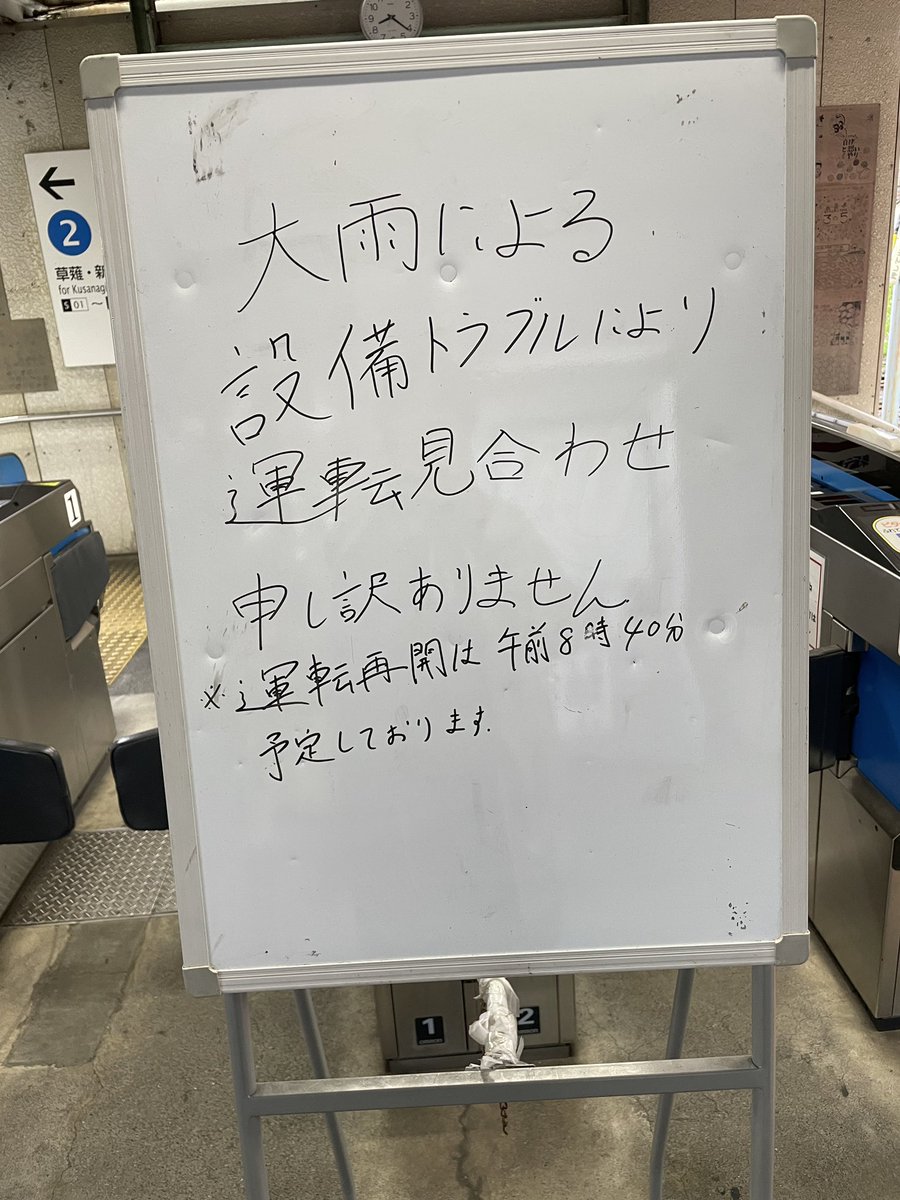 10
9
8
7
6
5
4
3
2
大雨による
設備トラブルにより
運転見合わせ
申し訳ありません
※運転再開は午前8時40分
予定しております.
←
2
草薙・新
for Kusanag
S 01 ～
1
1
2